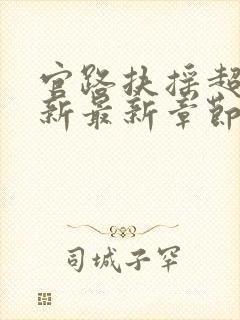 官路扶摇超
新最新章节
司城子罕